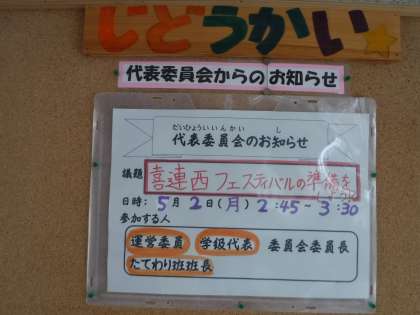 じどうかい
代表委員会からのお知らせ
だいひょういいんかい し
代表委員会のお知らせ
議題 喜連西フェスティバルの準備を
しよう
日時: 5月2日(月) 2:45~3:30
参加する人
運営委員 学級代表 委員会委員長
たてわり班班長